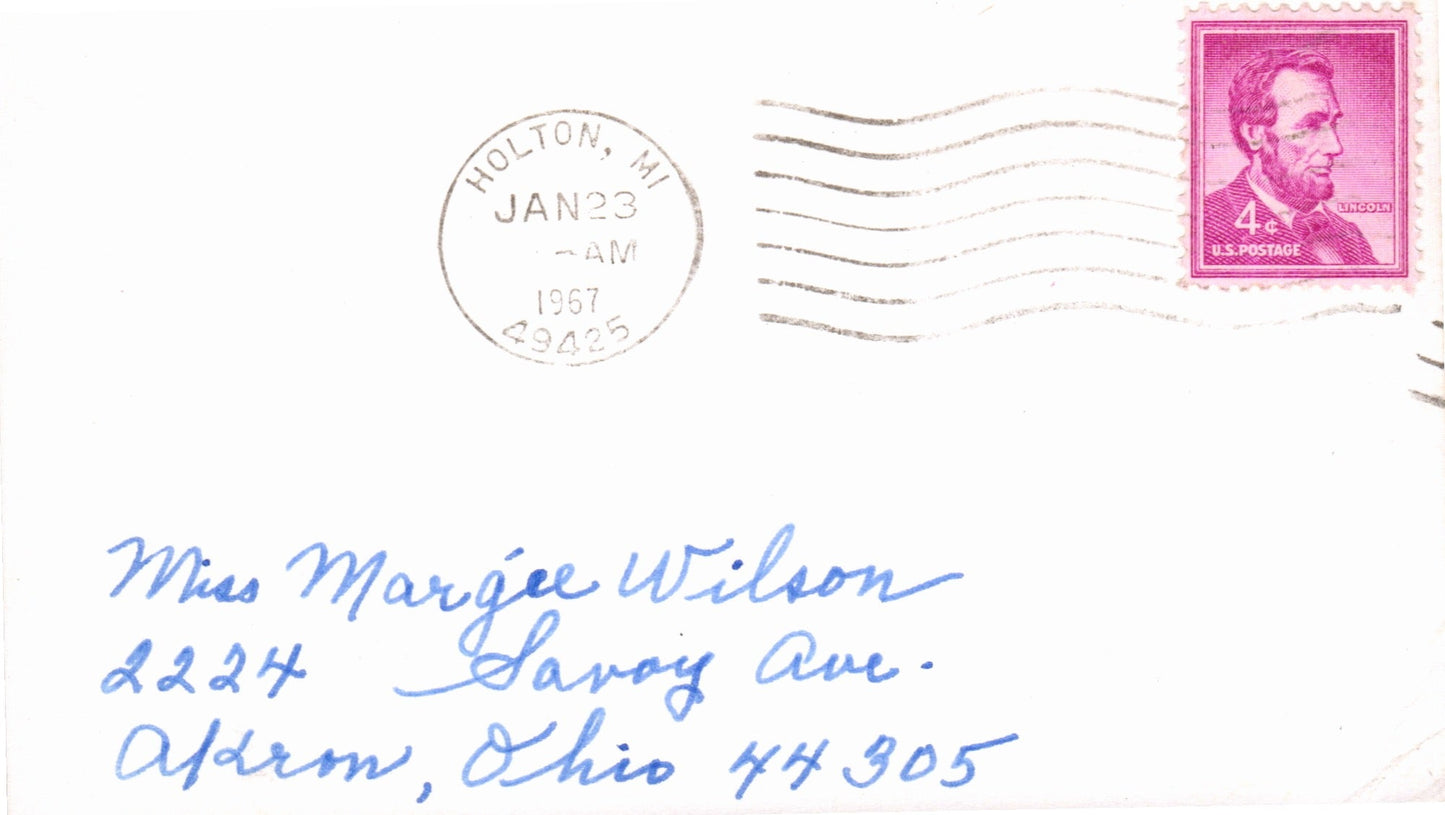 HOLTON, MI
JAN 23
AM
1967
49425
LINCOLN
4¢
U.S. POSTAGE
Miss Margie Wilson
2224 Savoy Ave.
Akron, Ohio 44305